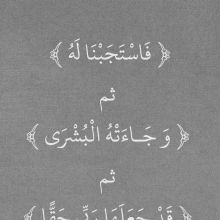 ﴿ فَاسْتَجَبْنَا لَهُ ﴾
ثم
﴿ وَجَـاءَتْهُ الْبُشْرَى ﴾
ثم
﴿ قَدْ جَعَلَهَا رَبِّي حَقًّا ﴾